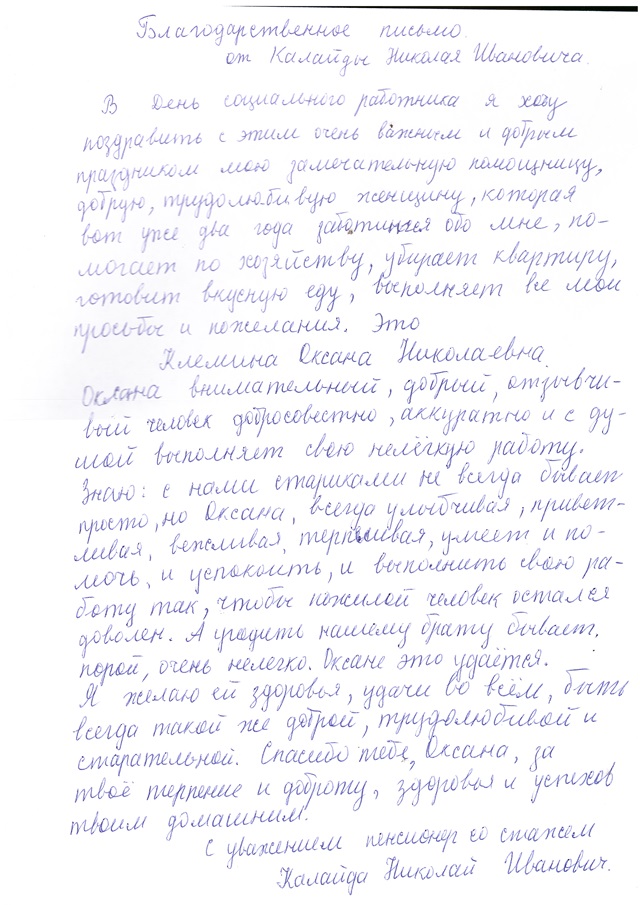 Благодарственное письмо.
от Калайды Николая Ивановича.
В День социального работника я хочу
поздравить с этим очень важным и добрым
праздником мою замечательную помощницу,
добрую, трудолюбивую женщину, которая
вот уже два года заботится обо мне, по-
могает по хозяйству, убирает квартиру,
готовит вкусную еду, выполняет все мои
просьбы и пожелания. Это
Клемина Оксана Николаевна.
Оксана внимательный, добрый, отзывчи-
вый человек добросовестно, аккуратно и с ду-
шой выполняет свою нелёгкую работу.
Знаю: с нами стариками не всегда бывает
просто, но Оксана, всегда улыбчивая, привет-
ливая, вежливая, терпеливая, умеет и по-
мочь, и успокоить, и выполнить свою ра-
боту так, чтобы пожилой человек остался
доволен. А угодить нашему брату бывает,
порой, очень нелегко. Оксане это удаётся.
Я желаю ей здоровья, удачи во всём, быть
всегда такой же доброй, трудолюбивой и
старательной. Спасибо тебе, Оксана, за
твоё терпение и доброту, здоровья и успехов
твоим домашним.
С уважением пенсионер со стажем
Калайда Николай Иванович.